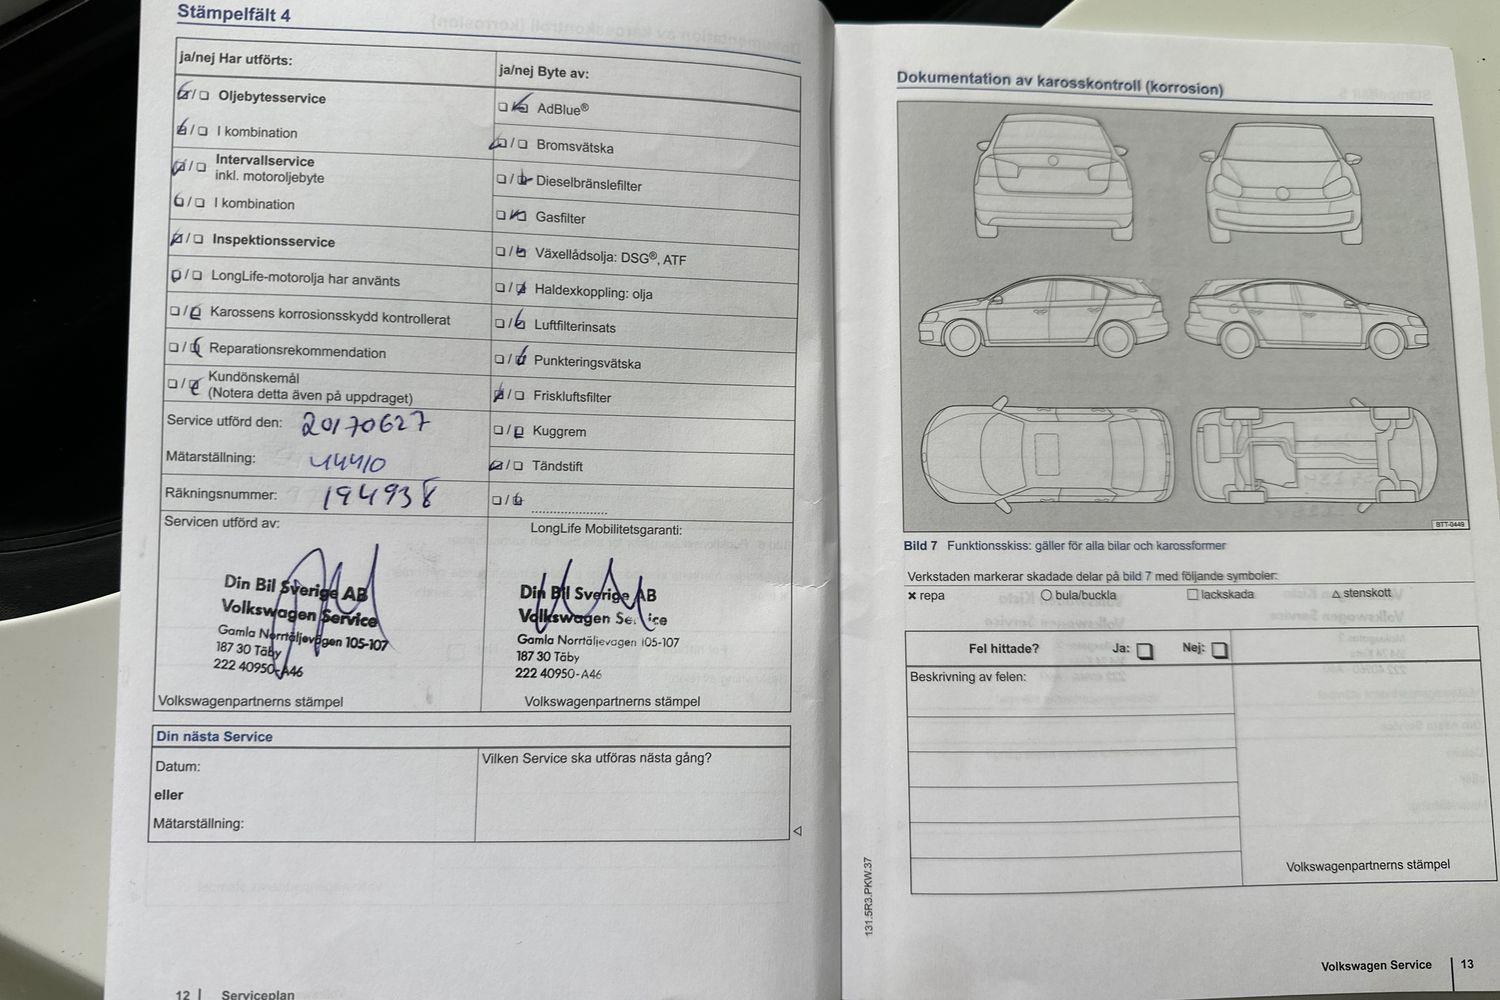 Stämpelfält 4
ja/nej Har utförts:
Oljebytesservice
I kombination
Intervallservice
inkl. motoroljebyte
I kombination
Inspektionsservice
LongLife-motorolja har använts
Karossens korrosionsskydd kontrollerat
Reparationsrekommendation
Kundönskemål
(Notera detta även på uppdraget)
Service utförd den: 20170627
Mätarställning: 44410
Räkningsnummer: 194938
Servicen utförd av:
Din Bil Sverige AB
Volkswagen Service
Gamla Norrtäljevägen 105-107
187 30 Täby
222 40950-A46
Volkswagenpartnerns stämpel
ja/nej Byte av:
AdBlue®
Bromsvätska
Dieselbränslefilter
Gasfilter
Växellådsolja: DSG®, ATF
Haldexkoppling: olja
Luftfilterinsats
Punkteringsvätska
Friskluftsfilter
Kuggrem
Tändstift
LongLife Mobilitetsgaranti:
Din Bil Sverige AB
Volkswagen Service
Gamla Norrtäljevägen 105-107
187 30 Täby
222 40950-A46
Volkswagenpartnerns stämpel
Din nästa Service
Datum:
eller
Mätarställning:
Vilken Service ska utföras nästa gång?
12 | Serviceplan
Dokumentation av karosskontroll (korrosion)
BTT-0449
Bild 7 Funktionsskiss: gäller för alla bilar och karossformer
Verkstaden markerar skadade delar på bild 7 med följande symboler:
× repa ○ bula/buckla □ lackskada △ stenskott
Fel hittade? Ja: Nej:
Beskrivning av felen:
Volkswagenpartnerns stämpel
131.5R3.PKW.37
Volkswagen Service | 13